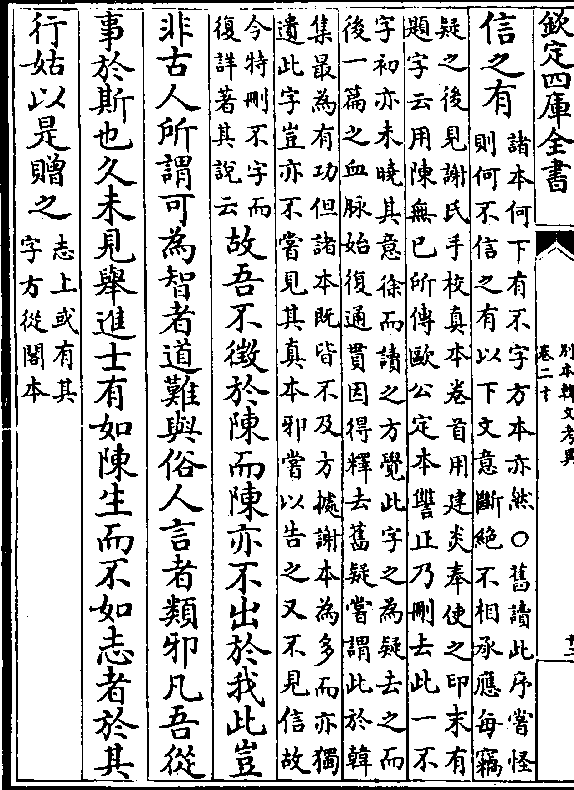 欽定四庫全書
別本韓文考異
卷二十
十二
信之有
諸本何下有不字方本亦然〇舊讀此序嘗怪
則何不信之有以下文意斷絕不相承應每竊
疑之後見謝氏手校真本卷首用建炎奉使之印末有
題字云用陳無已所傳歐公定本讐正乃刪去此一不
字初亦未曉其意徐而讀之方覺此字之為疑去之而
後一篇之血脉始復通貫因得釋去舊疑嘗謂此於韓
集最為有功但諸本既皆不及方據謝本為多而亦獨
遺此字豈亦不嘗見其真本邪嘗以告之又不見信故
今特刪不字而
復詳著其說云
故吾不徵於陳而陳亦不出於我此豈
非古人所謂可為智者道難與俗人言者類邪凡吾從
事於斯也久未見舉進士有如陳生而不如志者於其
行姑以是贈之
志上或有其
字方從閣本